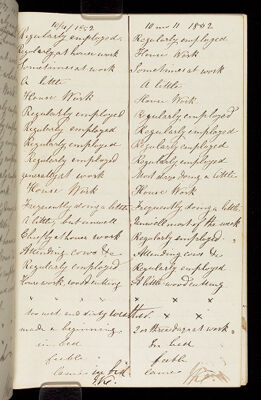 10/4/1852
Regularly employed
Regularly at house work
Sometimes at work
A little
House Work
Regularly employed
Regularly employed
Regularly employed
Regularly employed
Regularly employed
generally at work
House Work
Frequently doing a little
A little, but unwell
Chiefly at house work
Attending cows &c
Regularly employed
House work, wood cutting
" " "
too wet and dirty weather
made a beginning
in bed
feeble
lame in bed
10 mo 11 1852
Regularly employed
House Work
Sometimes at work
A little
House Work
Regularly employed
Regularly employed
Regularly employed
Regularly employed
Regularly employed
Most days doing a little
House Work
Frequently doing a little
Unwell most of the week
Regularly employed
Attending cows &c
Regularly employed
A little wood cutting
× × ×
× ×
2 or three days at work
In bed
feeble
lame